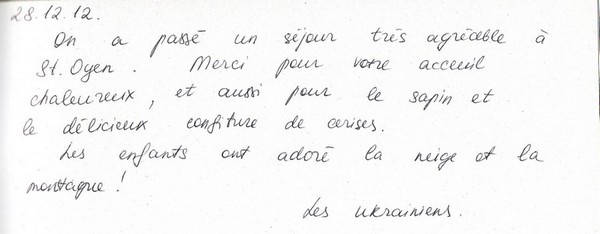 28.12.12.
On a passé un séjour très agréable à
St. Oyen. Merci pour votre acceuil
chaleureux, et aussi pour le sapin et
le délicieux confiture de cerises.
Les enfants ont adoré la neige et la
montagne!
Les ukrainiens.